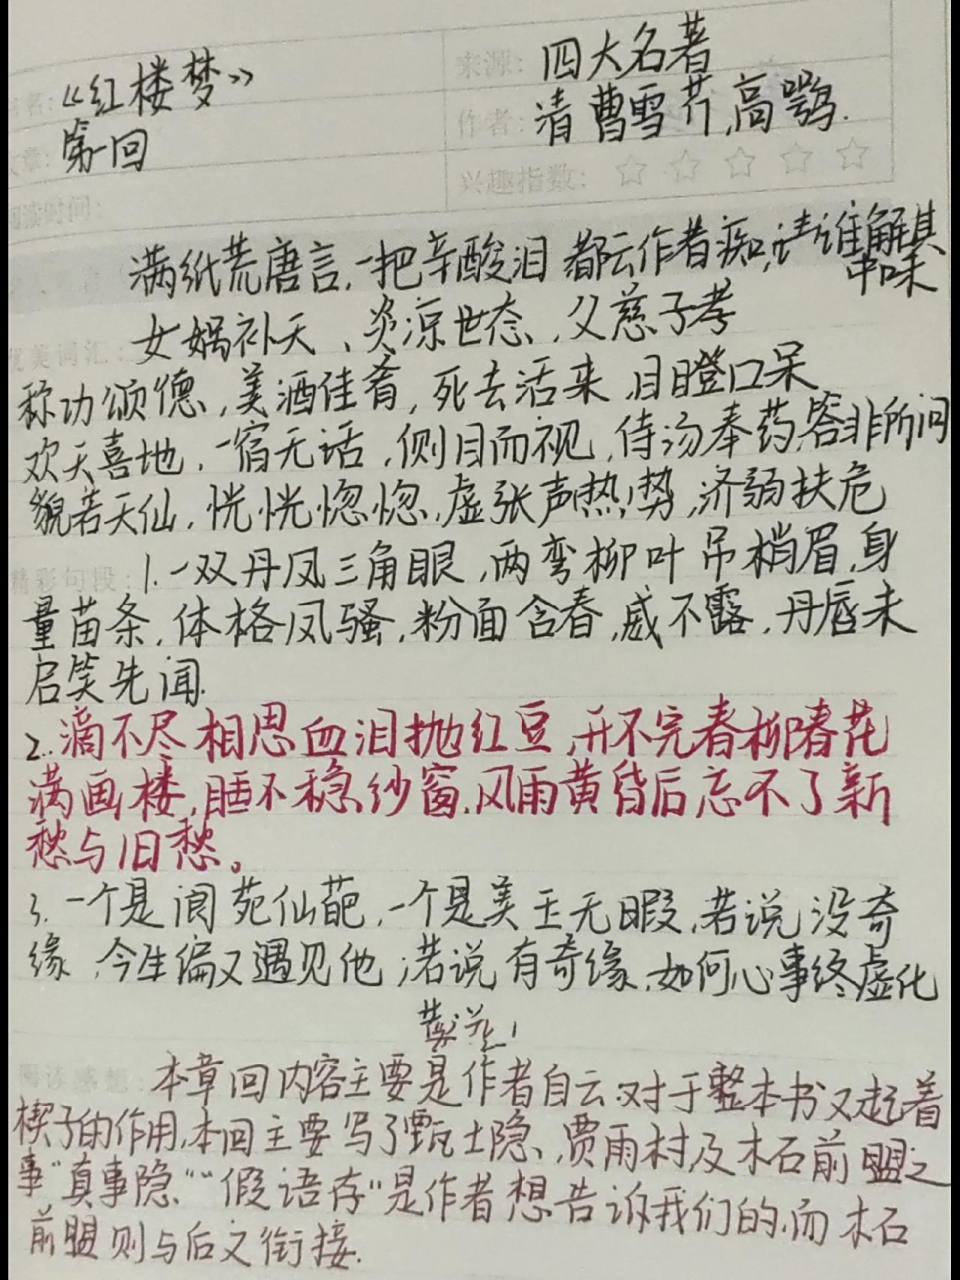 《红楼梦》
来源：四大名著
第一回
作者：清 曹雪芹，高鹗.
兴趣指数：☆☆☆☆☆
阅读时间：
满纸荒唐言，一把辛酸泪 都云作者痴，请谁解其
中味
美词汇：女娲补天、炎凉世态，父慈子孝
称功颂德，美酒佳肴，死去活来，目瞪口呆
欢天喜地，一宿无话，侧目而视，侍汤奉药，答非所问
貌若天仙，恍恍惚惚，虚张声热势，济弱扶危
精彩句段：1.一双丹凤三角眼，两弯柳叶吊梢眉，身
量苗条，体格风骚，粉面含春，威不露，丹唇未
启笑先闻.
2.滴不尽相思血泪抛红豆，开不完春柳春花
满画楼，睡不稳纱窗，风雨黄昏后，忘不了新
愁与旧愁。
3.一个是阆苑仙葩，一个是美玉无暇，若说没奇
缘，今生偏又遇见他，若说有奇缘，如何心事终虚化
阅读感想：本章回内容主要是作者自云，对于整本书又起着
楔子的作用，本回主要写了甄士隐、贾雨村，及木石前盟之
事“真事隐”“假语存”是作者想告诉我们的，而木石
前盟则与后文衔接.